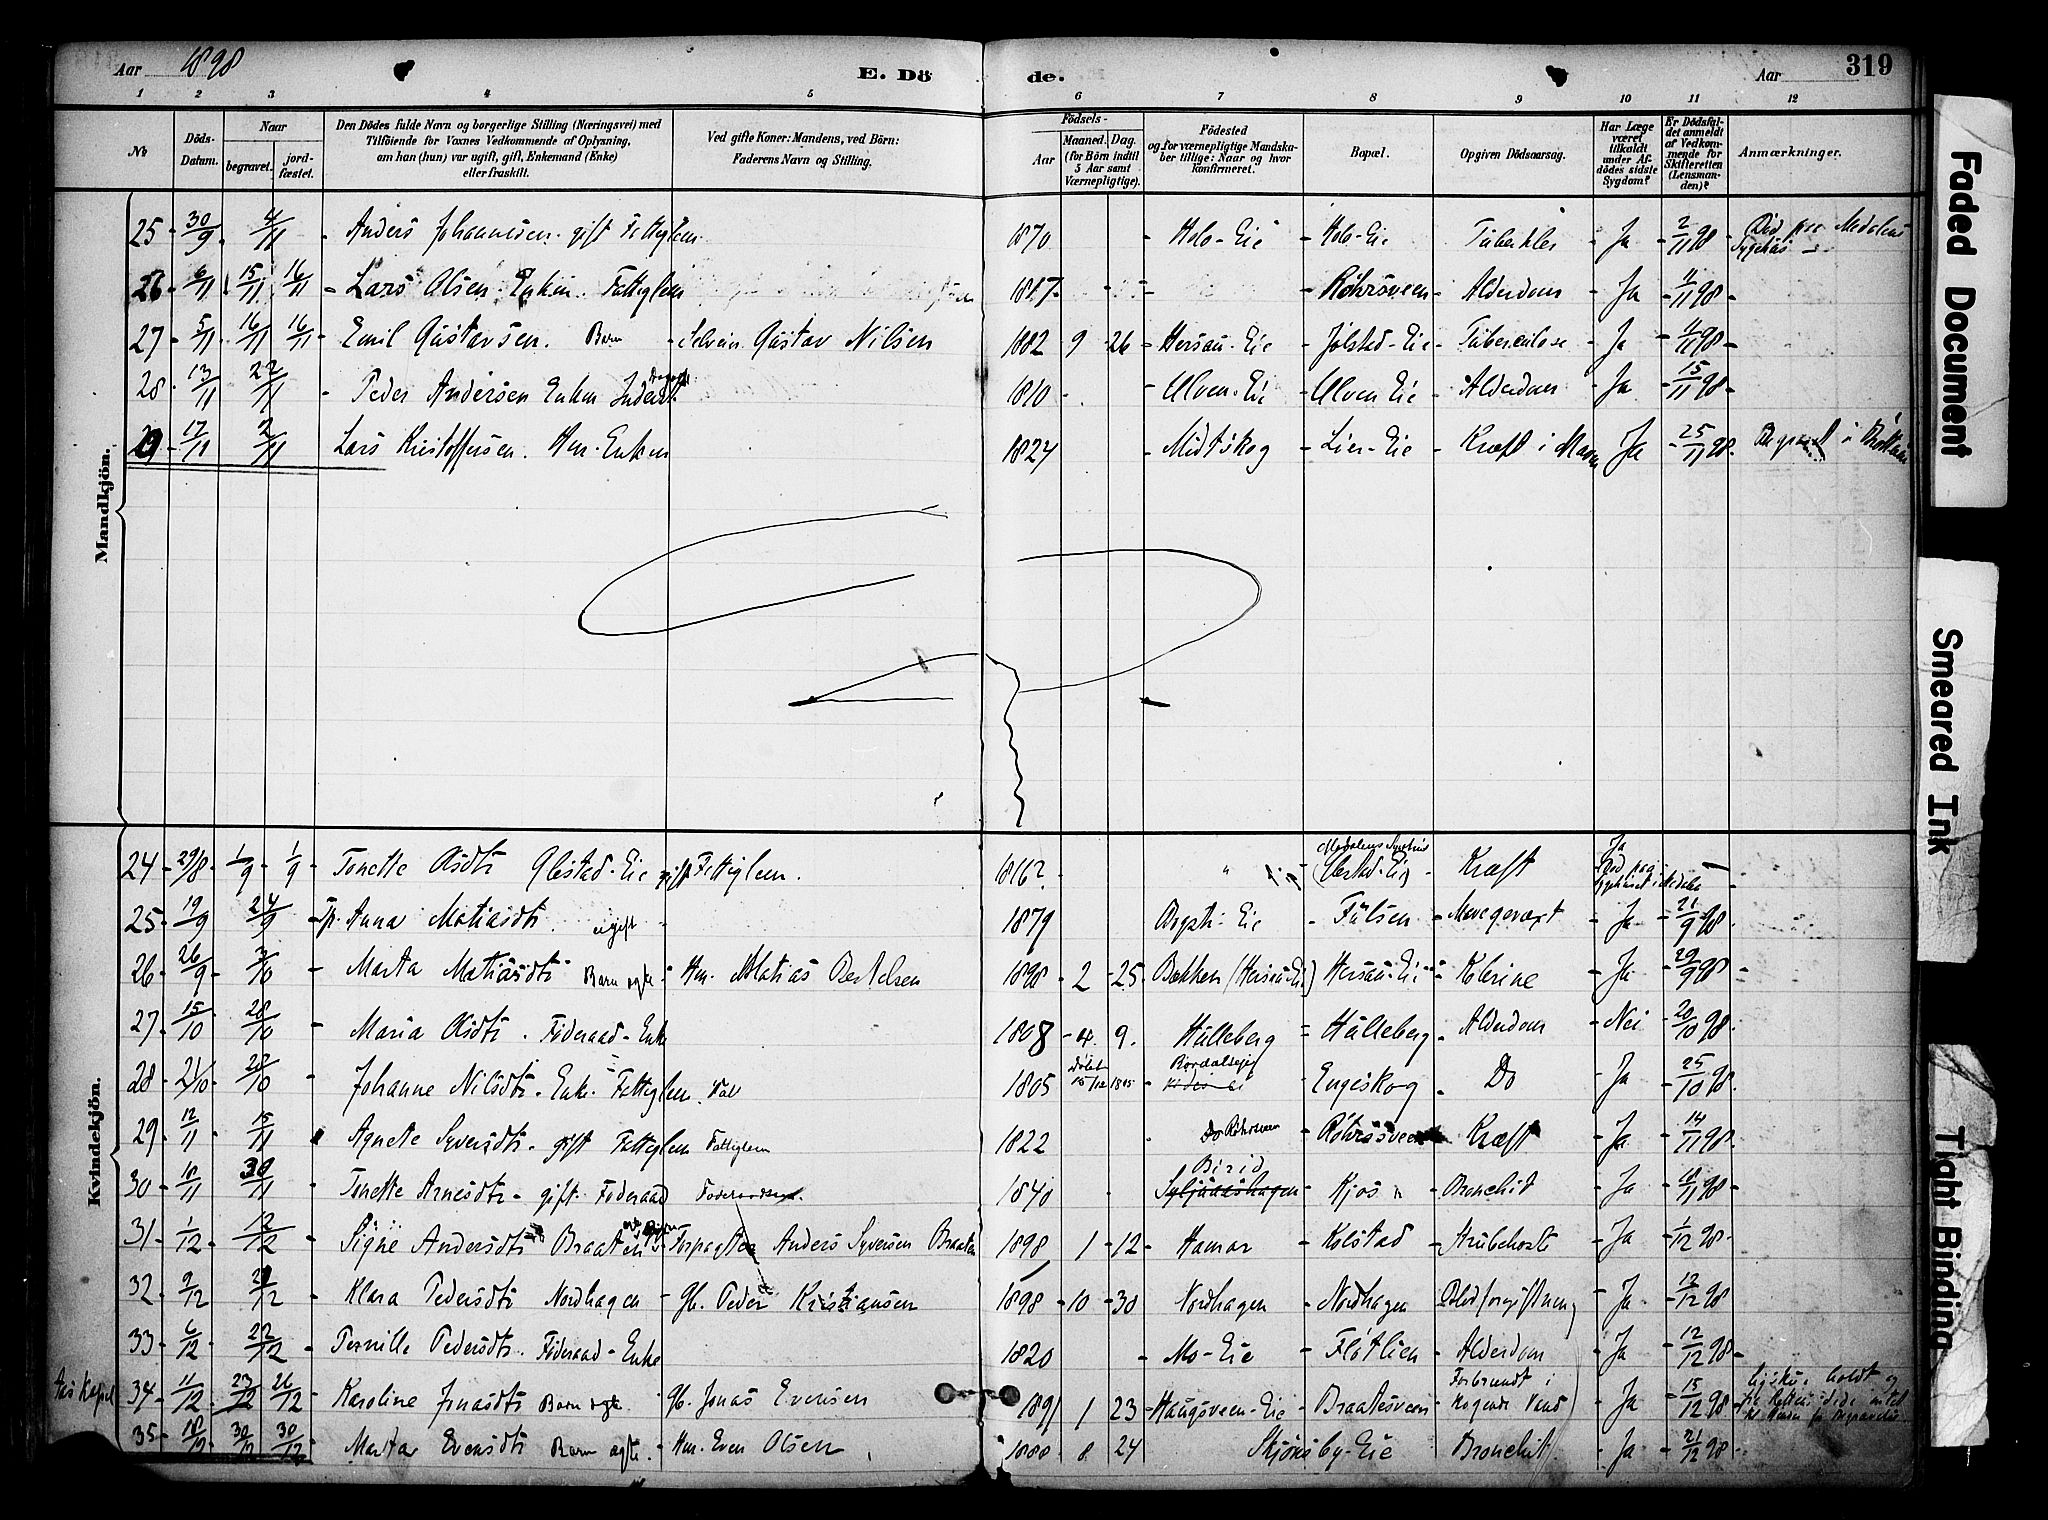 Aar 1898
E. Döde.
Aar
319
1 2 3 4 5 6 7 8 9 10 11 12
№
Döds-Datum.
Naar
begravet.
jordfæstet.
Den Dödes fulde Navn og borgerlige Stilling (Næringsvei) med
Tilföiende for Voxnes Vedkommende af Oplysning,
om han (hun) var ugift, gift, Enkemand (Enke)
eller fraskilt.
Ved gifte Koner: Mandens, ved Börn:
Faderens Navn og Stilling.
Födsels-
Aar
Maaned. Dag.
(for Börn indtil
5 Aar samt
Værnepligtige).
Födested
og for værnepligtige Mandska-
ber tillige: Naar og hvor
konfirmeret.
Bopæl.
Opgiven Dödsaarsag.
Har Læge
været
tilkaldt
under Af-
dödes sidste
Sygdom?
Er Dödsfal-
det anmeldt
af Vedkom-
mende for
Skifteretten
(Lensman-
den)?
Anmærkninger.
Mandkjön.
25 30/9 4/11 Anders Johannesen gift Fattiglem 1870 Holo-Eie Holo-Eie Tuberkler Ja 2/11 98 Död paa Medalens Sygehus
26 6/11 15/11 16/11 Lars Olsen Enkem. Fattiglem 1817 Röhrsveen Alderdom Ja 11/11 98
27 5/11 16/11 16/11 Emil Gustavsen. Barn Selveier Gustav Nilsen 1882 9 26 Hersau-Eie Jölstad-Eie Tuberculose Ja 11/11 98
28 13/11 22/11 Peder Andersen Enkem Inderst 1810 Ulven-Eie Ulven Eie Alderdom Ja 15/11 98
29 17/11 2/11 Lars Kristoffersen. Hm. Enkem 1824 Midtskog Lier-Eie Kræft i Maven Ja 25/11 98 Begravet i Brøttum
Kvindekjön.
24 29/8 1/9 1/9 Tonette Olsdtr Olestad-Eie gift Fattiglem. 1816? Kræft Ja
25 19/9 24/9 Anna Matiasdtr ugift 1879 Fulsen Mavegevæxt Ja 21/9 98
26 26/9 3/10 Marta Matiasdtr Barn ægte Hm. Matias Bertelsen 1898 2 25 Bækken (Hersau-Eie) Hersau-Eie Kolerine Ja 29/9 98
27 15/10 20/10 Maria Olsdtr. Föderaad-Enke 1808 9. Hulleberg Hulleberg Alderdom Nei 20/10 98
28 21/10 28/10 Johanne Nilsdtr. Enke. Fattiglem. 1805 Døbt 15/12 1805 Engeskog Do Ja 25/10 98
29 12/11 15/11 Agnete Syversdtr. gift Fattiglem Fattiglem 1822 Röhrsveen Kræft Ja 14/11 98
30 18/11 30/11 Tonette Arnesdtr gift. Föderaad 1840 Birid Kjos Bronchit Ja 18/11 98
31 1/12 12/12 Signe Andersdtr Braaten Forpagter Anders Syversen Braaten 1898 1 12 Hamar Kolstad Strubehoste Ja 1/12 98
32 9/12 21/12 Klara Pedersdtr Nordhagen Gb. Peder Kristiansen 1898 10 30 Nordhagen Nordhagen Blodforgiftning Ja 12/12 98
33 6/12 22/12 Pernille Pedersdtr. Föderaad-Enke 1820 Mo-Eie Flötlien Alderdom Ja 12/12 98
Aas Kapel 34 11/12 23/12 26/12 Karoline Jonasdtr Barn ægte. Gb. Jonas Evensen 1891 1 23 Haugsveen-Eie Braatesveen Forbrændt i kogende Vand Ja 15/12 98
35 18/12 30/12 30/12 Marta Evensdtr Barn ægte. Hm. Even Olsen 1888 8 24 Skjönsby-Eie Bronchit. Ja 21/12 98
Faded Document
Smeared Ink
Tight Binding